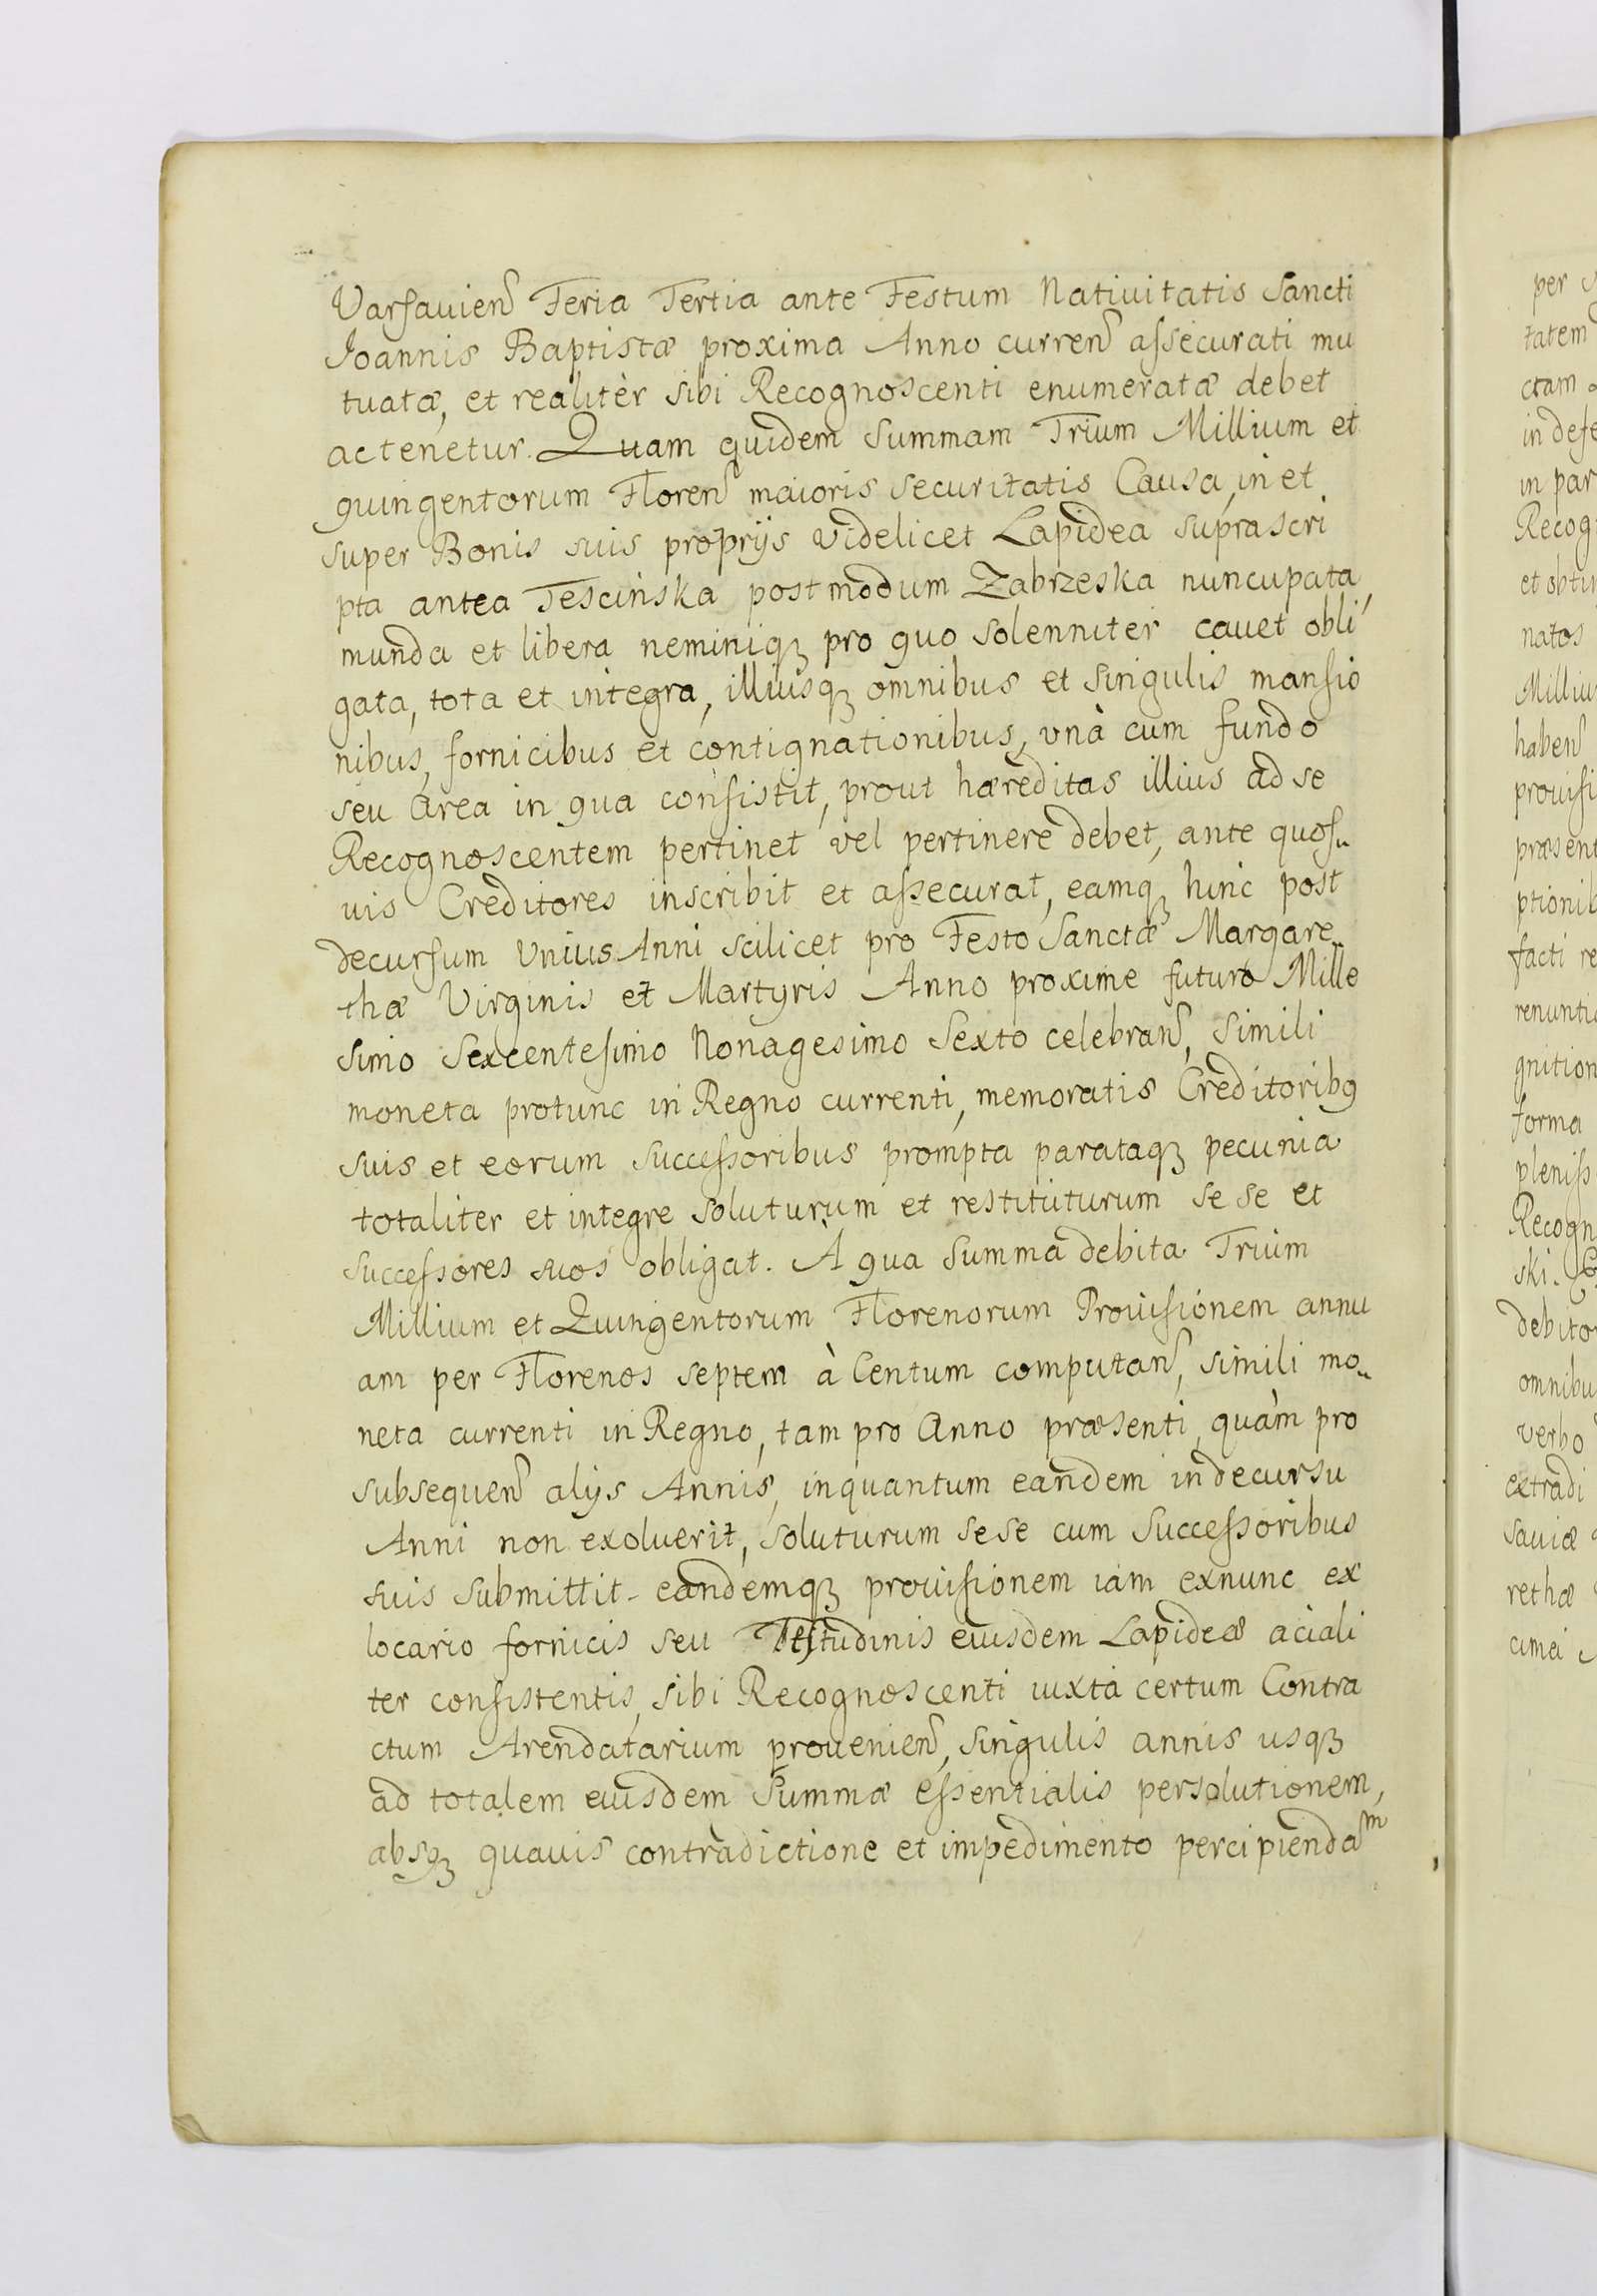 Varsauien Feria Tertia ante Festum Natiuitatis Sancti
Joannis Baptistæ proxima Anno curren assecurati mu
tuatæ, et realitèr sibi Recognoscenti enumeratæ debet
ac tenetur. Quam quidem Summam Trium Millium et
quingentorum Floren maioris securitatis Causa, in et
super Bonis suis proprijs videlicet Lapidea suprascri
pta antea Tescinska postmodum Zabrzeska nuncupata,
munda et libera neminiqꝫ pro quo solenniter cauet obli
gata, tota et integra, illiusqꝫ omnibus et singulis mansio
nibus, fornicibus et contignationibus, vnà cum fundo
seu Area in qua consistit, prout hæreditas illius ad se
Recognoscentem pertinet vel pertinere debet, ante quos„
uis Creditores inscribit et assecurat, eamqꝫ hinc post
decursum Vnius Anni scilicet pro Festo Sanctæ Margare„
thæ Virginis et Martyris Anno proxime futuro Mille
simo Sexcentesimo Nonagesimo Sexto celebran, Simili
moneta protunc in Regno currenti, memoratis Creditoribꝰ
suis et eorum successoribus prompta parataqꝫ pecunia
totaliter et integre soluturum et restituturum se se et
successores suos obligat. A qua Summa debita Trium
Millium et Quingentorum Florenorum Prouisionem annu
am per Florenos septem à Centum computan, simili mo„
neta currenti in Regno, tam pro Anno præsenti, quàm pro
subsequen alijs Annis, inquantum eandem in decursu
Anni non exoluerit, soluturum sese cum Successoribus
suis submittit. eandemqꝫ prouisionem iam exnunc ex
locario fornicis seu Testudinis eiusdem Lapideæ aciali
ter consistentis, sibi Recognoscenti iuxta certum Contra
ctum Arendatarium prouenien, singulis annis usqꝫ
ad totalem eiusdem Summæ essentialis persolutionem,
absqꝫ quauis contradictione et impedimento percipiendam
per
tatem
ctam
in defe
in par
Recog
et obti
natos
Milliu
haben
prouisi
præsent
ptionib
facti re
renuntia
gnition
forma
pleniss
Recogn
ski.
debito
omnibu
verbo
extradi
sauiæ
rethæ
cimei